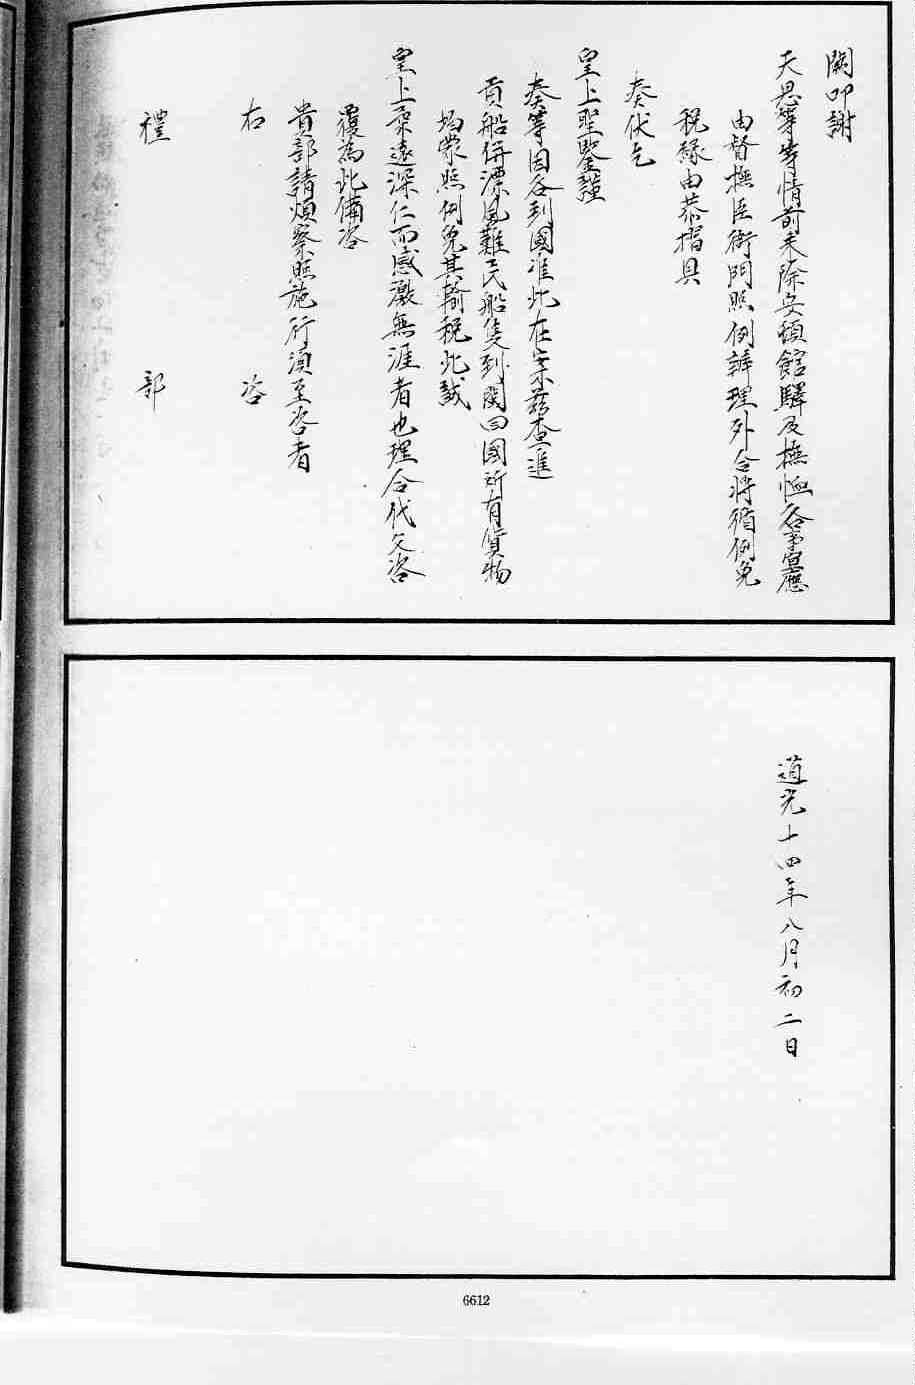 闕叩謝
天恩等情前來除安頓館驛及撫恤各事宜應
由督撫臣衙門照例辦理外合將循例免
稅緣由恭摺具
奏伏乞
皇上聖鑒謹
奏等因咨到國准此在案茲查進
貢船併漂風難民船隻到閩回國所有貨物
均蒙照例免其輸稅此誠
皇上柔遠深仁而感激無涯者也理合代文咨
覆為此備咨
貴部請煩察照施行須至咨者
右 咨
禮 部
道光十四年八月初二日
6612